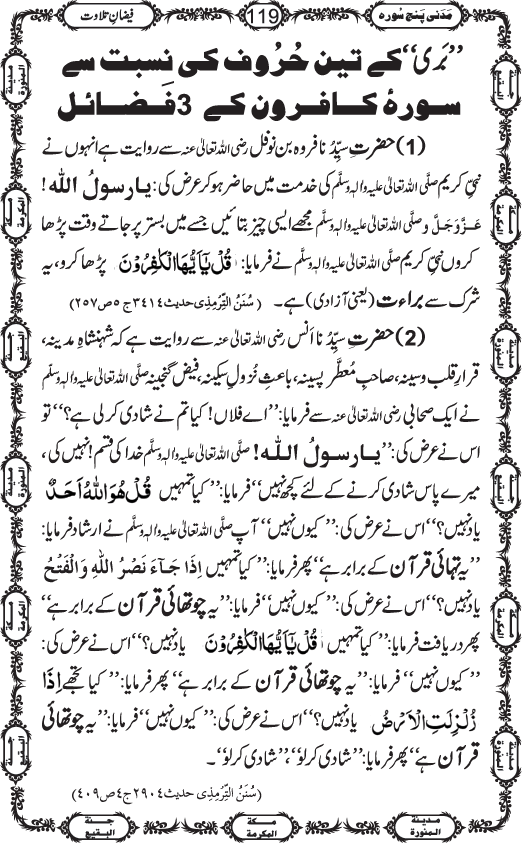 مَدَنی پنج سورہ 119 فیضانِ تلاوت
’’بَری‘‘کے تین حُرُوف کی نسبت سے
سورۂ کافرون کے 3 فَضائل
(1) حضرتِ سیِّدُنا فروہ بن نوفل رضی اللہ تعالیٰ عنہ سے روایت ہے انہوں نے
نبیِّ کریم صلَّی اللہ تعالیٰ علیہ واٰلہٖ وسلَّم کی خدمت میں حاضر ہو کر عرض کی : یارسولُ اللہ !
عَزَّوَجَلَّ و صلَّی اللہ تعالیٰ علیہ واٰلہٖ وسلَّم مجھے ایسی چیز بتائیں جسے میں بستر پر جاتے وقت پڑھا
کروں نبیِّ کریم صلَّی اللہ تعالیٰ علیہ واٰلہٖ وسلَّم نے فرمایا : قُلْ یٰۤاَیُّهَا الْكٰفِرُوْنَ پڑھا کرو، یہ
شرک سے براءت (یعنی آزادی) ہے۔ (سُنَنُ التِّرْمِذِی حدیث ۳۴۱۴ ج ۵ ص ۲۵۷)
(2) حضرتِ سیِّدُنا اَنَس رضی اللہ تعالیٰ عنہ سے روایت ہے کہ شہنشاہِ مدینہ،
قرارِ قلب و سینہ، صاحبِ مُعطَّر پسینہ، باعثِ نُزولِ سکینہ، فیض گنجینہ صلَّی اللہ تعالیٰ علیہ واٰلہٖ وسلَّم
نے ایک صحابی رضی اللہ تعالیٰ عنہ سے فرمایا: ’’اے فلاں! کیا تم نے شادی کر لی ہے؟‘‘ تو
اس نے عرض کی: ’’یارسولُ اللہ! صلَّی اللہ تعالیٰ علیہ واٰلہٖ وسلَّم خدا کی قسم ! نہیں کی،
میرے پاس شادی کرنے کے لئے کچھ نہیں‘‘ فرمایا: ’’کیا تمہیں قُلْ هُوَ اللّٰهُ اَحَدٌ
یاد نہیں؟‘‘ اس نے عرض کی: ’’کیوں نہیں‘‘ آپ صلَّی اللہ تعالیٰ علیہ واٰلہٖ وسلَّم نے ارشاد فرمایا:
’’یہ تہائی قرآن کے برابر ہے‘‘ پھر فرمایا: ’’کیا تمہیں اِذَا جَآءَ نَصْرُ اللّٰهِ وَ الْفَتْحُ
یاد نہیں؟‘‘ اس نے عرض کی: ’’کیوں نہیں‘‘ فرمایا: ’’یہ چوتھائی قرآن کے برابر ہے‘‘
پھر دریافت فرمایا: ’’کیا تمہیں قُلْ یٰۤاَیُّهَا الْكٰفِرُوْنَ یاد نہیں؟‘‘ اس نے عرض کی:
’’کیوں نہیں‘‘ فرمایا: ’’یہ چوتھائی قرآن کے برابر ہے‘‘ پھر فرمایا: ’’کیا تجھے اِذَا
زُلْزِلَتِ الْاَرْضُ یاد نہیں؟‘‘ اس نے عرض کی: ’’کیوں نہیں‘‘ فرمایا: ’’یہ چوتھائی
قرآن ہے‘‘ پھر فرمایا: ’’شادی کر لو‘‘، ’’شادی کر لو‘‘۔
(سُنَنُ التِّرْمِذِی حدیث ۲۹۰۴ ج ۴ ص ۴۰۹)
جنّة البقیع
مکّة المکرمة
مدینة المنورة